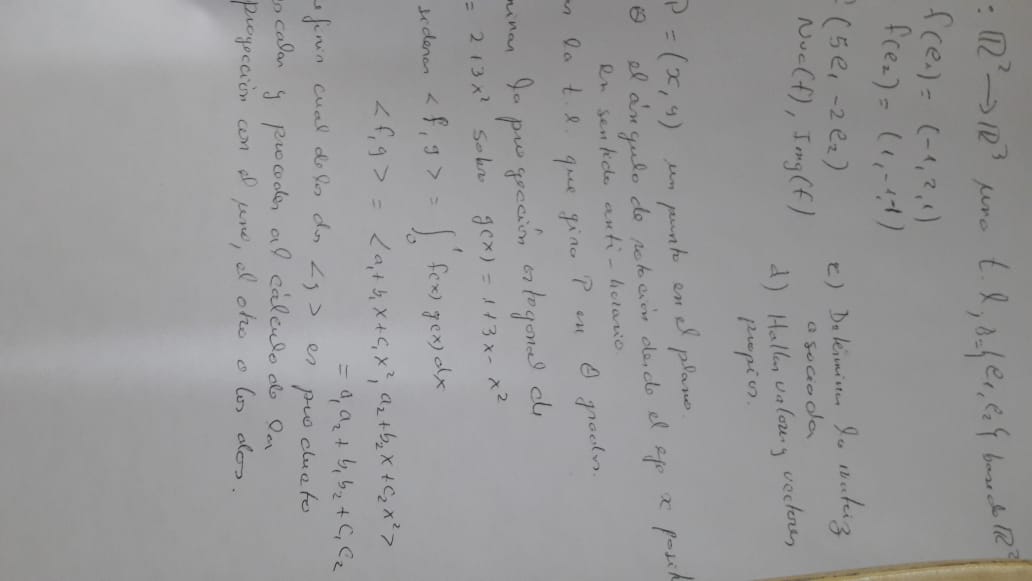 : ℝ² → ℝ³ una t.l, B={e₁, e₂} base de ℝ²
f(e₁) = (-1, 2, 1)
f(e₂) = (1, -1, -1)
(5e₁ - 2e₂)
Nuc(f), Img(f)
c) Determinar la matriz
asociada
d) Hallar valores y vectores
propios.
P = (x, y) un punto en el plano.
θ el ángulo de rotación desde el eje x posit
en sentido anti-horario.
la t.l. que gira P en θ grados.
la proyección ortogonal de
= 2+3x² sobre g(x) = 1+3x-x²
siderar <f, g> = ∫₀¹ f(x) g(x) dx
<f, g> = <a₁+b₁x+c₁x², a₂+b₂x+c₂x²>
= a₁a₂ + b₁b₂ + c₁c₂
efinir cual de los dos <,> es producto
scalar y proceder al cálculo de la
proyección con el uno, el otro o los dos.